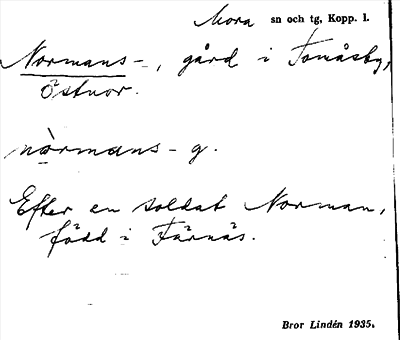 Mora sn och tg, Kopp. l.
Normans-, gård i Tomåsby,
Östnor.
nòrmans- g.
Efter en soldat Norman,
född i Färnäs.
Bror Lindén 1935.